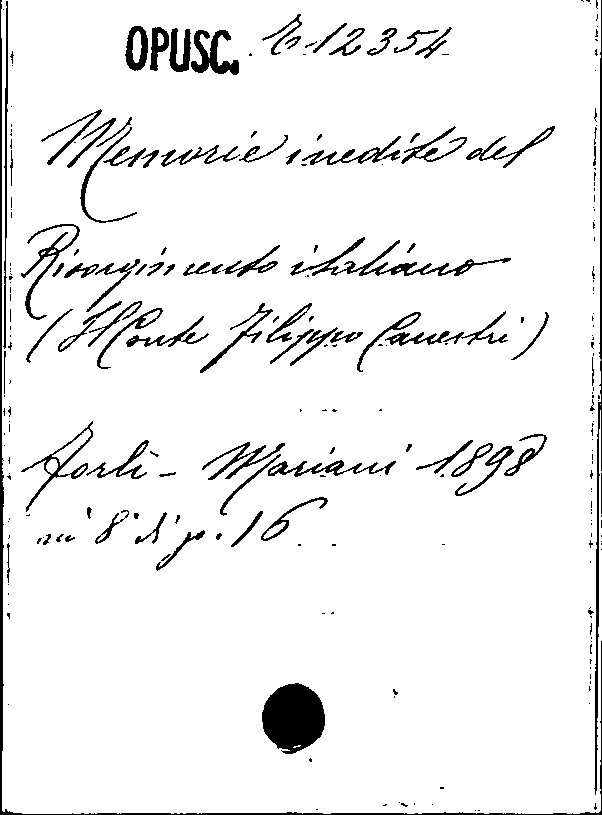 OPUSC. E 12354
Memorie inedite del
Risorgimento italiano
(Il Conte Filippo Canestri)
Forlì - Mariani 1898
in 8° di p. 16